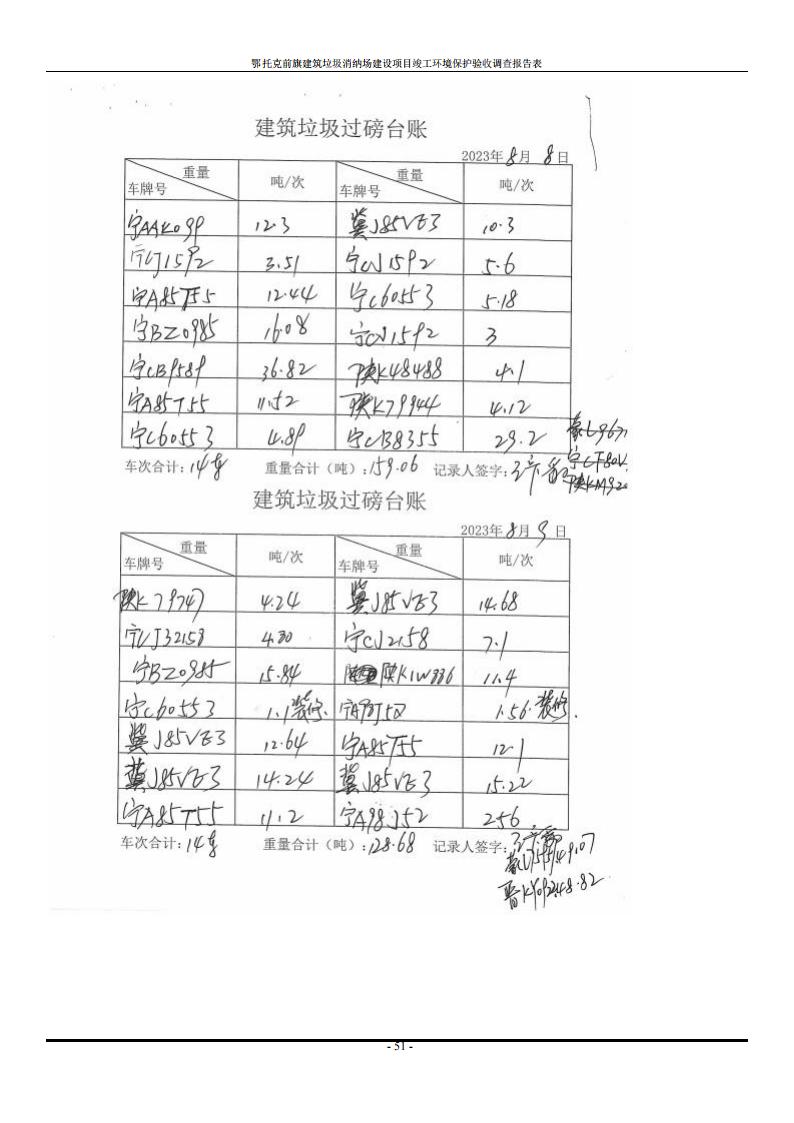 鄂托克前旗建筑垃圾消纳场建设项目竣工环境保护验收调查报告表
建筑垃圾过磅台账
2023年8月8日
车牌号 重量 吨/次 车牌号 重量 吨/次
宁AAK099 12.3 冀J85VE3 10.3
宁CJ1592 3.51 宁CJ1592 5.6
宁A85T55 12.44 宁C60553 5.18
宁BZ0985 16.08 宁CJ1592 3
宁CB9589 36.82 陕K48488 4.1
宁A85T55 11.52 陕K79944 4.12
宁C60553 4.89 宁CB8355 29.2
车次合计:14车 重量合计(吨):159.06 记录人签字:
建筑垃圾过磅台账
2023年8月9日
车牌号 重量 吨/次 车牌号 重量 吨/次
陕K79747 4.24 冀J85VE3 14.68
宁CJ32158 4.80 宁CJ2158 7.1
宁BZ0985 15.84 陕K1W336 11.4
宁C60553 1.1装修. 1.56.装修.
冀J85VE3 12.64 宁A85T55 12.1
冀J85VE3 14.24 冀J85VE3 15.22
宁A85T55 11.2 宁A98J52 2.56
车次合计:14车 重量合计(吨):128.68 记录人签字:
49.07
48.82
- 51 -